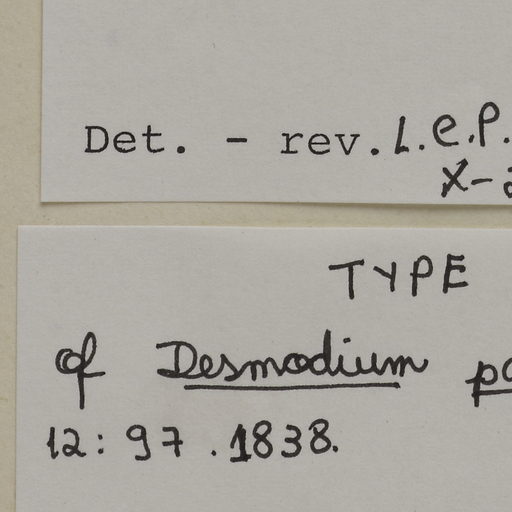 Det. - rev. L.e.P.
X-2
TYPE
of Desmodium pa
12: 97 . 1838.